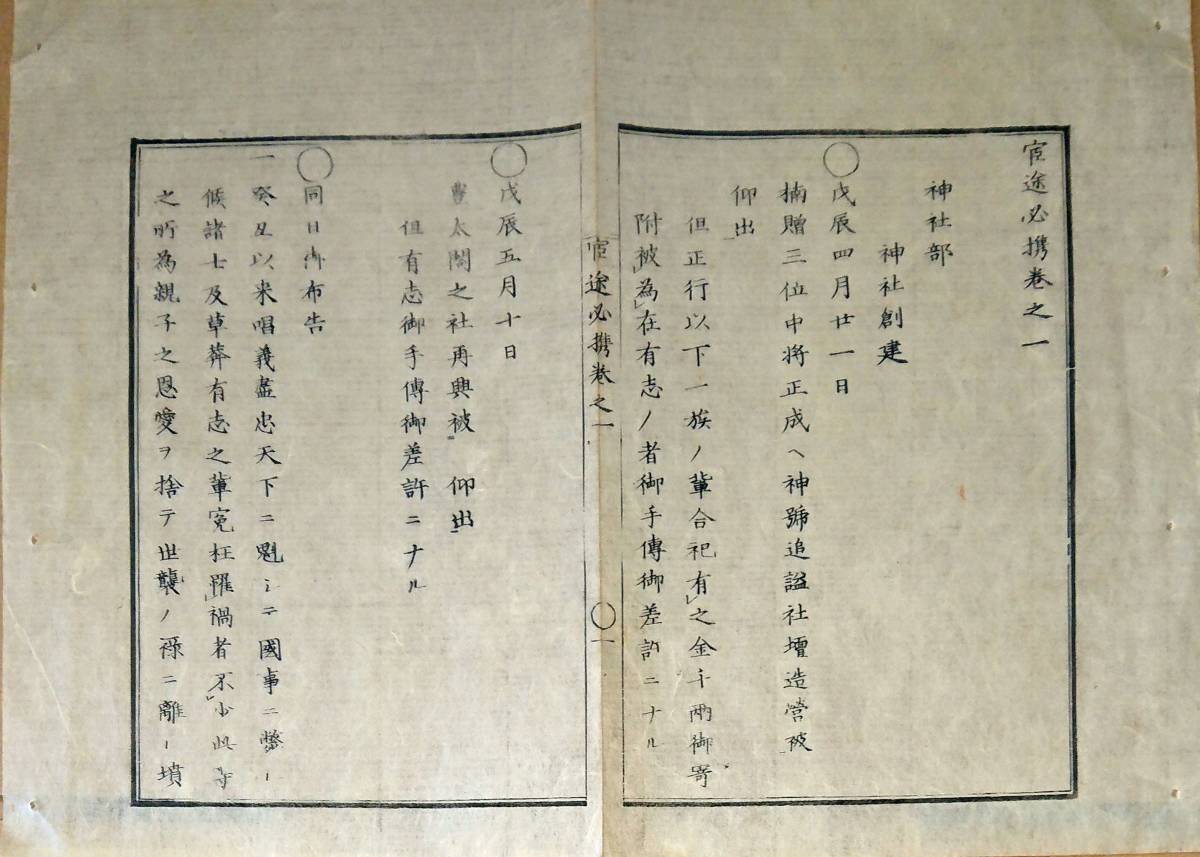 宦途必携巻之一
神社部
神社創建
○戊辰四月廿一日
楠贈三位中将正成ヘ神號追謚社壇造營被
仰出
但正行以下一族ノ輩合祀有レ之金千兩御寄
附被レ為レ在有志ノ者御手傳御差許ニナル
宦途必携巻之一
○一
○戊辰五月十日
豊太閤之社再興被 仰出
但有志御手傳御差許ニナル
○同日御布告
一癸丑以来唱義盡忠天下ニ魁シテ國事ニ斃レ
候諸士及草莽有志之輩寃枉罹レ禍者不レ少此等
之所為親子之恩愛ヲ捨テ世襲ノ禄ニ離レ墳